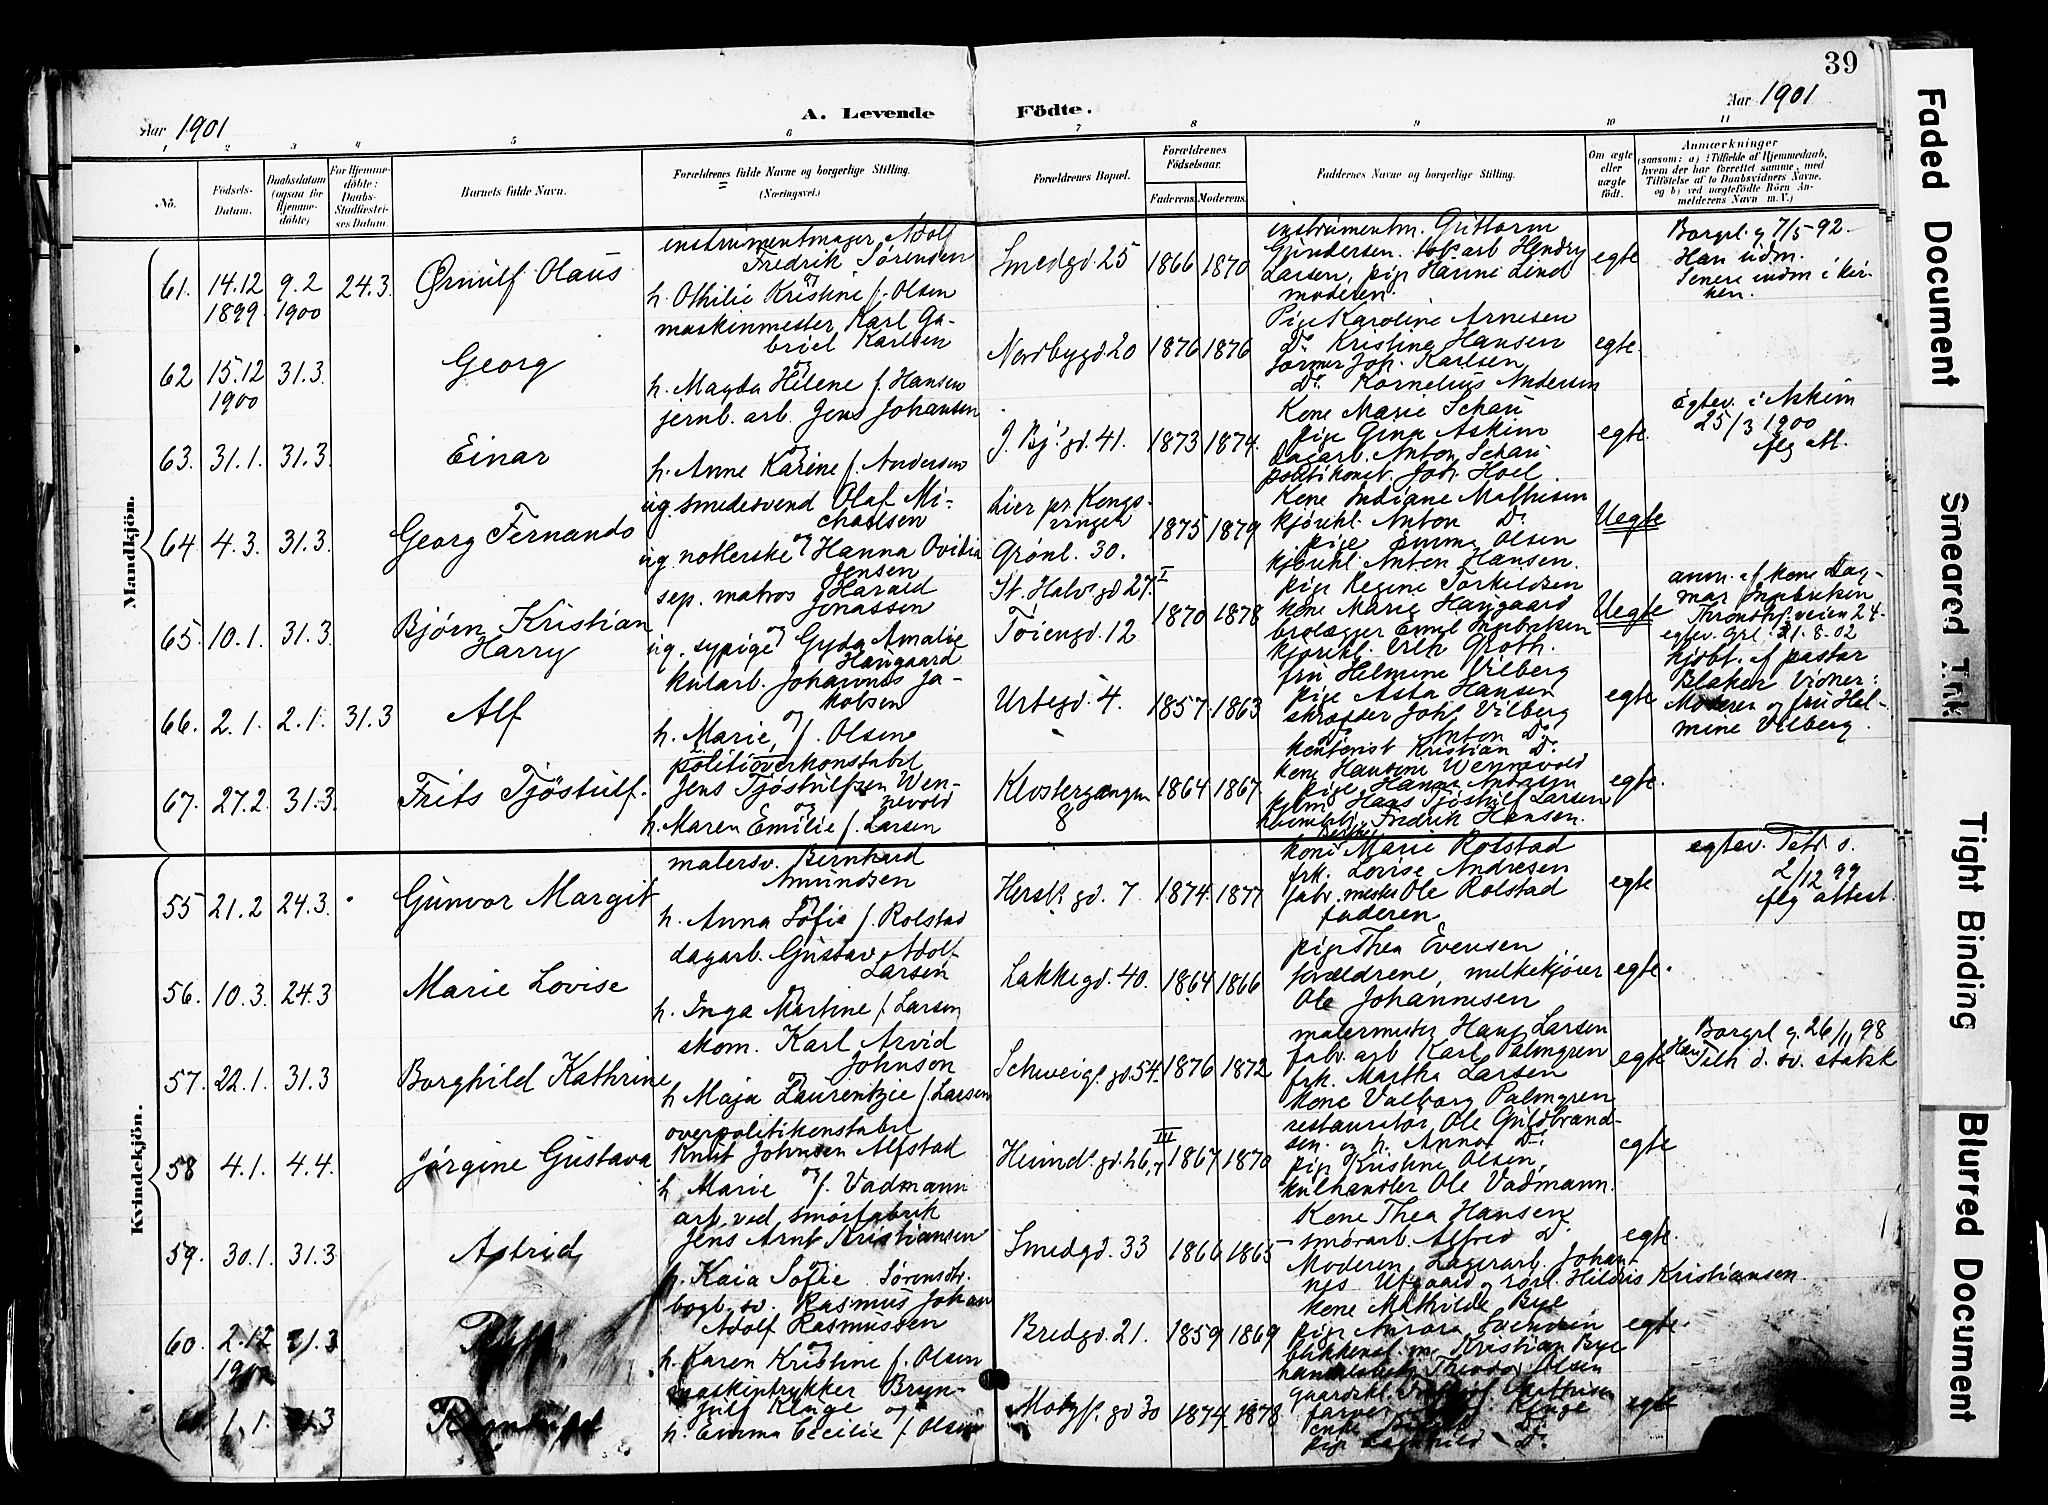 39
Aar 1901
A. Levende Födte.
Aar 1901
1 2 3 4 5 6 7 8 9 10 11
No.
Födsels-Datum.
Daabsdatum (ogsaa for Hjemme-döbte)
For Hjemme-döbte: Daabs-Stadfæstel-ses Datum.
Barnets fulde Navn.
Forældrenes fulde Navne og borgerlige Stilling. (Næringsvei.)
Forældrenes Bopæl.
Forældrenes Födselsaar.
Faderens. Moderens.
Faddernes Navne og borgerlige Stilling.
Om ægte eller uægte födt.
Anmærkninger
(saasom: a) i Tilfælde af Hjemmedaab, hvem der har forrettet samme, med Tilföielse af to Daabsvidners Navne, og b) ved uægtefödte Börn Anmelderens Navn m. V.)
Mandkjön.
61. 14.12 1899 9.2 1900 24.3. Ørnulf Olaus
instrumentmager Adolf
Fredrik Sørensen
og
h. Othilie Kristine f. Olsen
Smedgd. 25 1866 1870
instrumentm. Guttorm
Gundersen. Hendry
Larsen, pige Hanna Lind
moderen.
egte
Borgrl. g 7/5-92.
Han udm.
Senere indm i kir-
ken.
62 15.12 1900 31.3. Georg
maskinmester Karl Ga-
briel Karlsen
og
h. Magda Helene f. Hansen
Nordbygd 20 1876 1876
Pige Karoline Arnesen
Do Kristine Hansen
former Joh. Karlsen
Do. Kornelius Andersen
egte.
63. 31.1. 31.3. Einar
jernb. arb. Jens Johansen
og
h. Anne Karine f. Andersen
J. Bj. gd. 41. 1873 1874.
Kone Marie Schau
pige Gina Askim
dagarb. Anton Schau
politikonst. Joh. Hoel.
egte.
Egtev. i Askim
25/3 1900
flg att.
64 4.3. 31.3. Georg Fernando
ug. smedesvend Olaf Mi-
chaelsen
og
ug. Hanna Ovidia
Jensen
Lier pr Kongs-
vinger
Grönl. 30. 1875 1879
Kone Indiane Mathisen
kjörekl. Anton Do.
pige Emma Olsen
kjörekl. Anton Hansen.
Uegte
65. 10.1. 31.3. Bjørn Kristian
Harry
sep. matros Harald
Jonassen
og
ug. sypige Gyda Amalie
Haugaard
St. Halv. gd 27. I
Töiengd. 12 1870 1878
pige Regine Torkildsen
kone Marie Haugaard
brolægger Emil Ingebretsen
kjörekl. Groth.
Uegte
anm. af kone Dag-
mar Ingebretsen
Throndhj.veien 24.
egtev. Grl. 21-8-02
66. 2.1. 2.1. 31.3 Alf
kularb. Johannes Ja-
kobsen
og
h. Marie f. Olsen
Urtegd. 4. 1857. 1863
fru Helmine Vilberg
pige Asta Hansen
skræder Joh. Vilberg
Do. Anton Do.
egte
hjdbt. af pastor
Blaker Vidner:
Moderen og fru Hel-
mine Vilberg.
67. 27.2. 31.3. Frits Tjöstulf.
politioverkonstabel
Jens Tjöstulfsen Wen-
nevold
og
h. Maren Emilie f. Larsen
Klostergangen
8 1864 1867.
kontorist Kristian Do.
kone Hansine Wennevold
pige Hanna Andersen
Hans Tjöstulf Larsen
Fredrik Hansen.
egte.
Kvindekjön.
55 21.2 24.3. Gunvor Margit
malersv. Bernhard
Amundsen
og
h. Anna Sofie f. Rolstad
Hersl. gd. 7. 1874. 1877
kone Marie Rolstad
frk. Lovise Andresen
fabr. mester Ole Rolstad
faderen
egte
egtev. Petr. s.
2/12 99
flg attest.
56. 10.3. 24.3 Marie Lovise
dagarb. Gustav Adolf
Larsen
og
h. Inga Martine f. Larsen
Lakkegd. 40. 1864 1866
pige Thea Evensen
forældrene, melkekjörer
Ole Johannesen
egte.
57. 22.1. 31.3 Borghild Kathrine
skom. Karl Arvid
Johnson
og
h Maja Laurentzie f. Larsen
Schweig. gd. 54. 1876 1872
malermester Hans Larsen
fabr. arb Karl Palmgren
frk. Martha Larsen
kone Valborg Palmgren
egte
Borgrl g. 26/11 98
Han Tilh d. sv. statsk
58 4.1. 4.4. Jørgine Gustava
overpolitikonstabel
Knut Johnsen Alfstad
og
h Marie f. Vadmann
Heimd. gd. 26, III 1867 1870
restauratör Ole Guldbrand-
sen. og h. Anna Do.
pige Kristine Olsen,
kulhandler Ole Vadmann.
egte
59. 30.1. 31.3 Astrid
arb. ved smörfabrik
Jens Arnt Kristiansen
og
h. Kaia Sofie Sørensdtr.
Smedgd. 33 1866 1865
Kone Thea Hansen
smörarb. Alfred Do.
Moderen Lagerarb. Johan-
nes og rörl. Hildris Kristiansen.
egte.
60. 2.12 1900 31.3
bogb. sv. Rasmus Johan
Adolf Rasmussen
og
h. Karen Kristine f. Olsen
Bredgd. 21. 1859 1869
kone Mathilde Bye
pige Aurora
Kristian Bye
Theodor Olsen
egte.
1.1. 31.3
maskintrykker Bryn-
julf Kluge og
h. Emma Cecilie f. Olsen
Motzf. gd 30 1874. 1878
farver Kluge
pige Ragnhild Do.
egte
Faded Document
Smeared Ink.
Tight Binding
Blurred Document